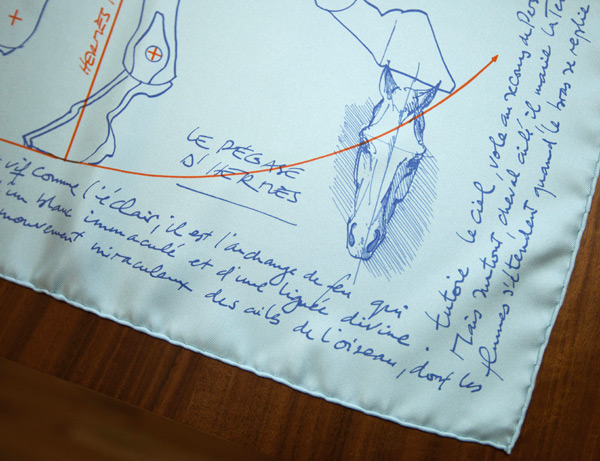 HERMES
LE PEGASE
D'HERMES
vif comme l'éclair, il est l'archange de feu qui
un blanc immaculé et d'une lignée divine.
mouvement miraculeux des ailes de l'oiseau, dont les
tutoie le ciel, vole au secours de
Mais surtout cheval ailé, il marie la
plumes s'étendent quand le bras se replie